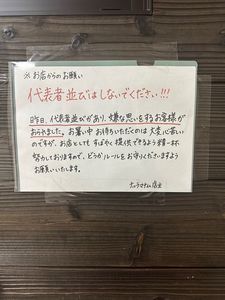 ※お店からのお願い
代表者並びはしないでください!!!
昨日、代表者並びがあり、嫌な思いをするお客様が
おられました。お暑い中お待ちいただくのは大変心苦しい
のですが、お店としても すばやく提供できるよう精一杯
努力しておりますので、どうかルールをお守りくださいますよう
お願いいたします。
店主